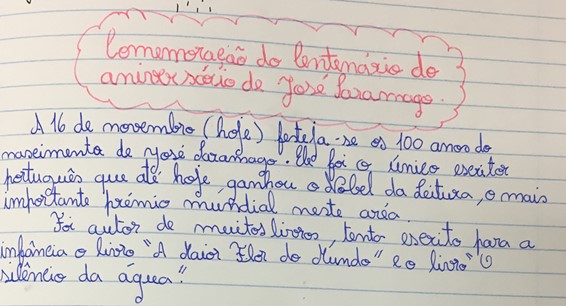 Comemoração do Centenário do
aniversário de José Saramago.
A 16 de novembro (hoje) festeja-se os 100 anos do
nascimento de José Saramago. Ele foi o único escritor
português que até hoje, ganhou o Nobel da Leitura, o mais
importante prémio mundial neste aréa.
Foi autor de muitos livros, tento escrito para a
infância o livro "A Maior Flor do Mundo" e o livro "O
silêncio da água".